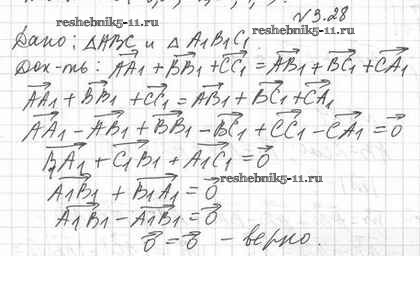 reshebnik5-11.ru
reshebnik5-11.ru
№3.28
Дано: △ABC и △ A₁B₁C₁
Док-ть: AA₁ + BB₁ + CC₁ = AB₁ + BC₁ + CA₁
AA₁ + BB₁ + CC₁ = AB₁ + BC₁ + CA₁
AA₁ - AB₁ + BB₁ - BC₁ + CC₁ - CA₁ = 0
B₁A₁ + C₁B₁ + A₁C₁ = 0
A₁B₁ + B₁A₁ = 0
reshebnik5-11.ru
A₁B₁ - A₁B₁ = 0
0 = 0 - верно.